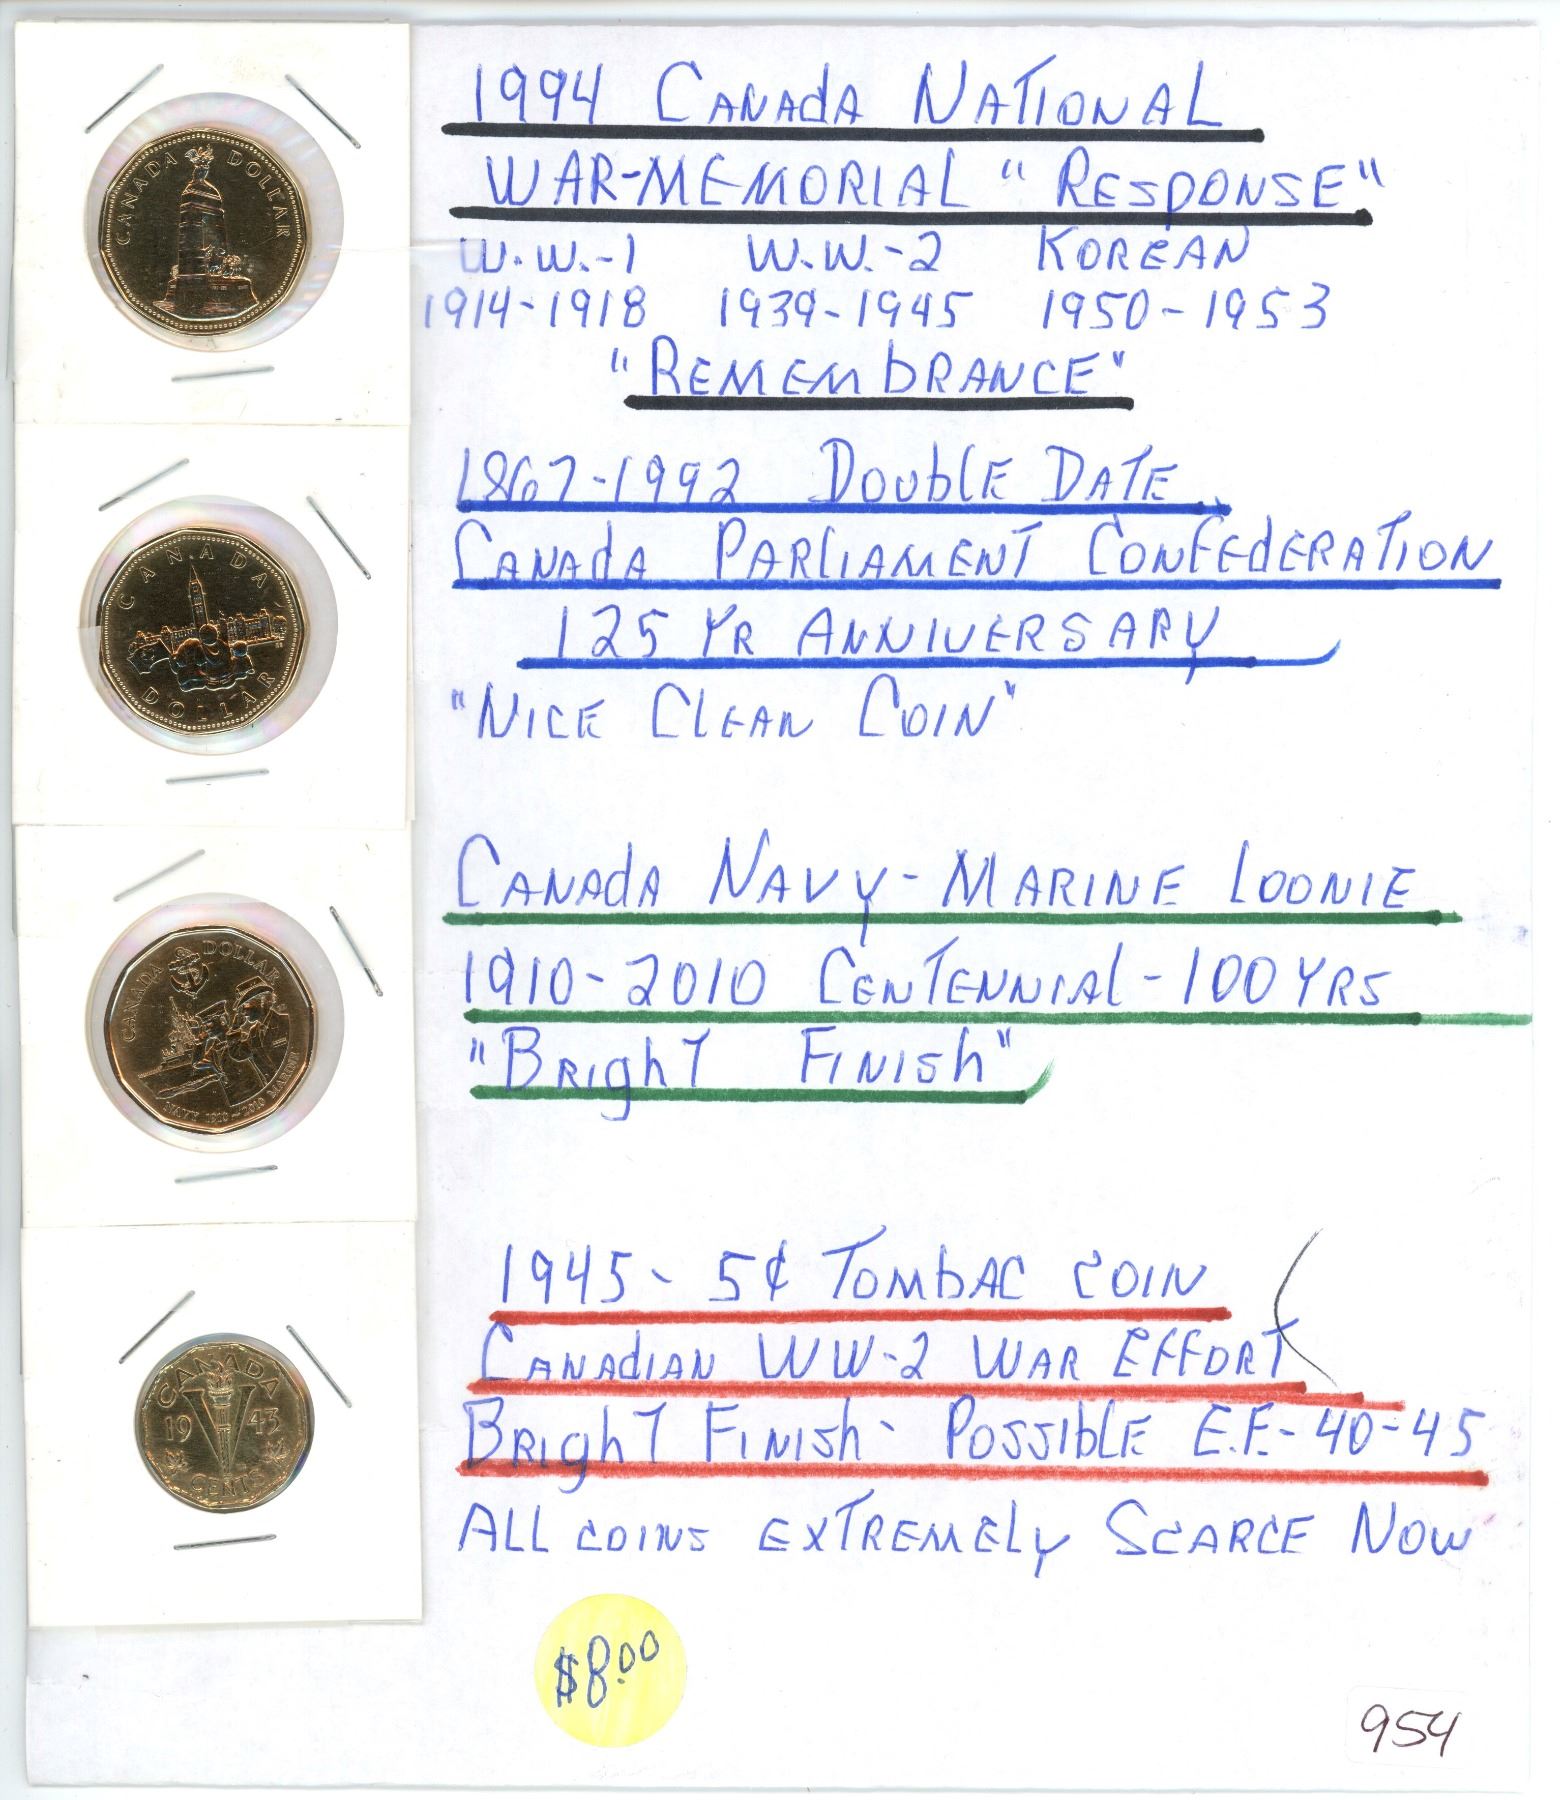 1994 CANAdA NATIONAL
WAR-MEMORIAL "RESPONSE"
W.W.-1 W.W.-2 KOREAN
1914-1918 1939-1945 1950-1953
"REMEMbRANCE"
1867-1992 DOUblE DATE
CANAdA PARlIAMENT CONFEdERATION
125 YR ANNIVERSARY
"NICE ClEAN COIN"
CANAdA NAVY-MARINE LOONIE
1910-2010 CENTENNIAl-100 YRS
"BRIghT FINISh"
1945- 5¢ TOMbAC COIN
CANAdIAN WW-2 WAR EFFORT
BRIghT FINISh- POSSIblE E.F.-40-45
ALL COINS EXTREMELY SCARCE NOW
$8.00
954
CANADA DOLLAR
CANADA
DOLLAR
CANADA DOLLAR
NAVY 1910-2010 MARINE
CANADA
19 43
CENTS